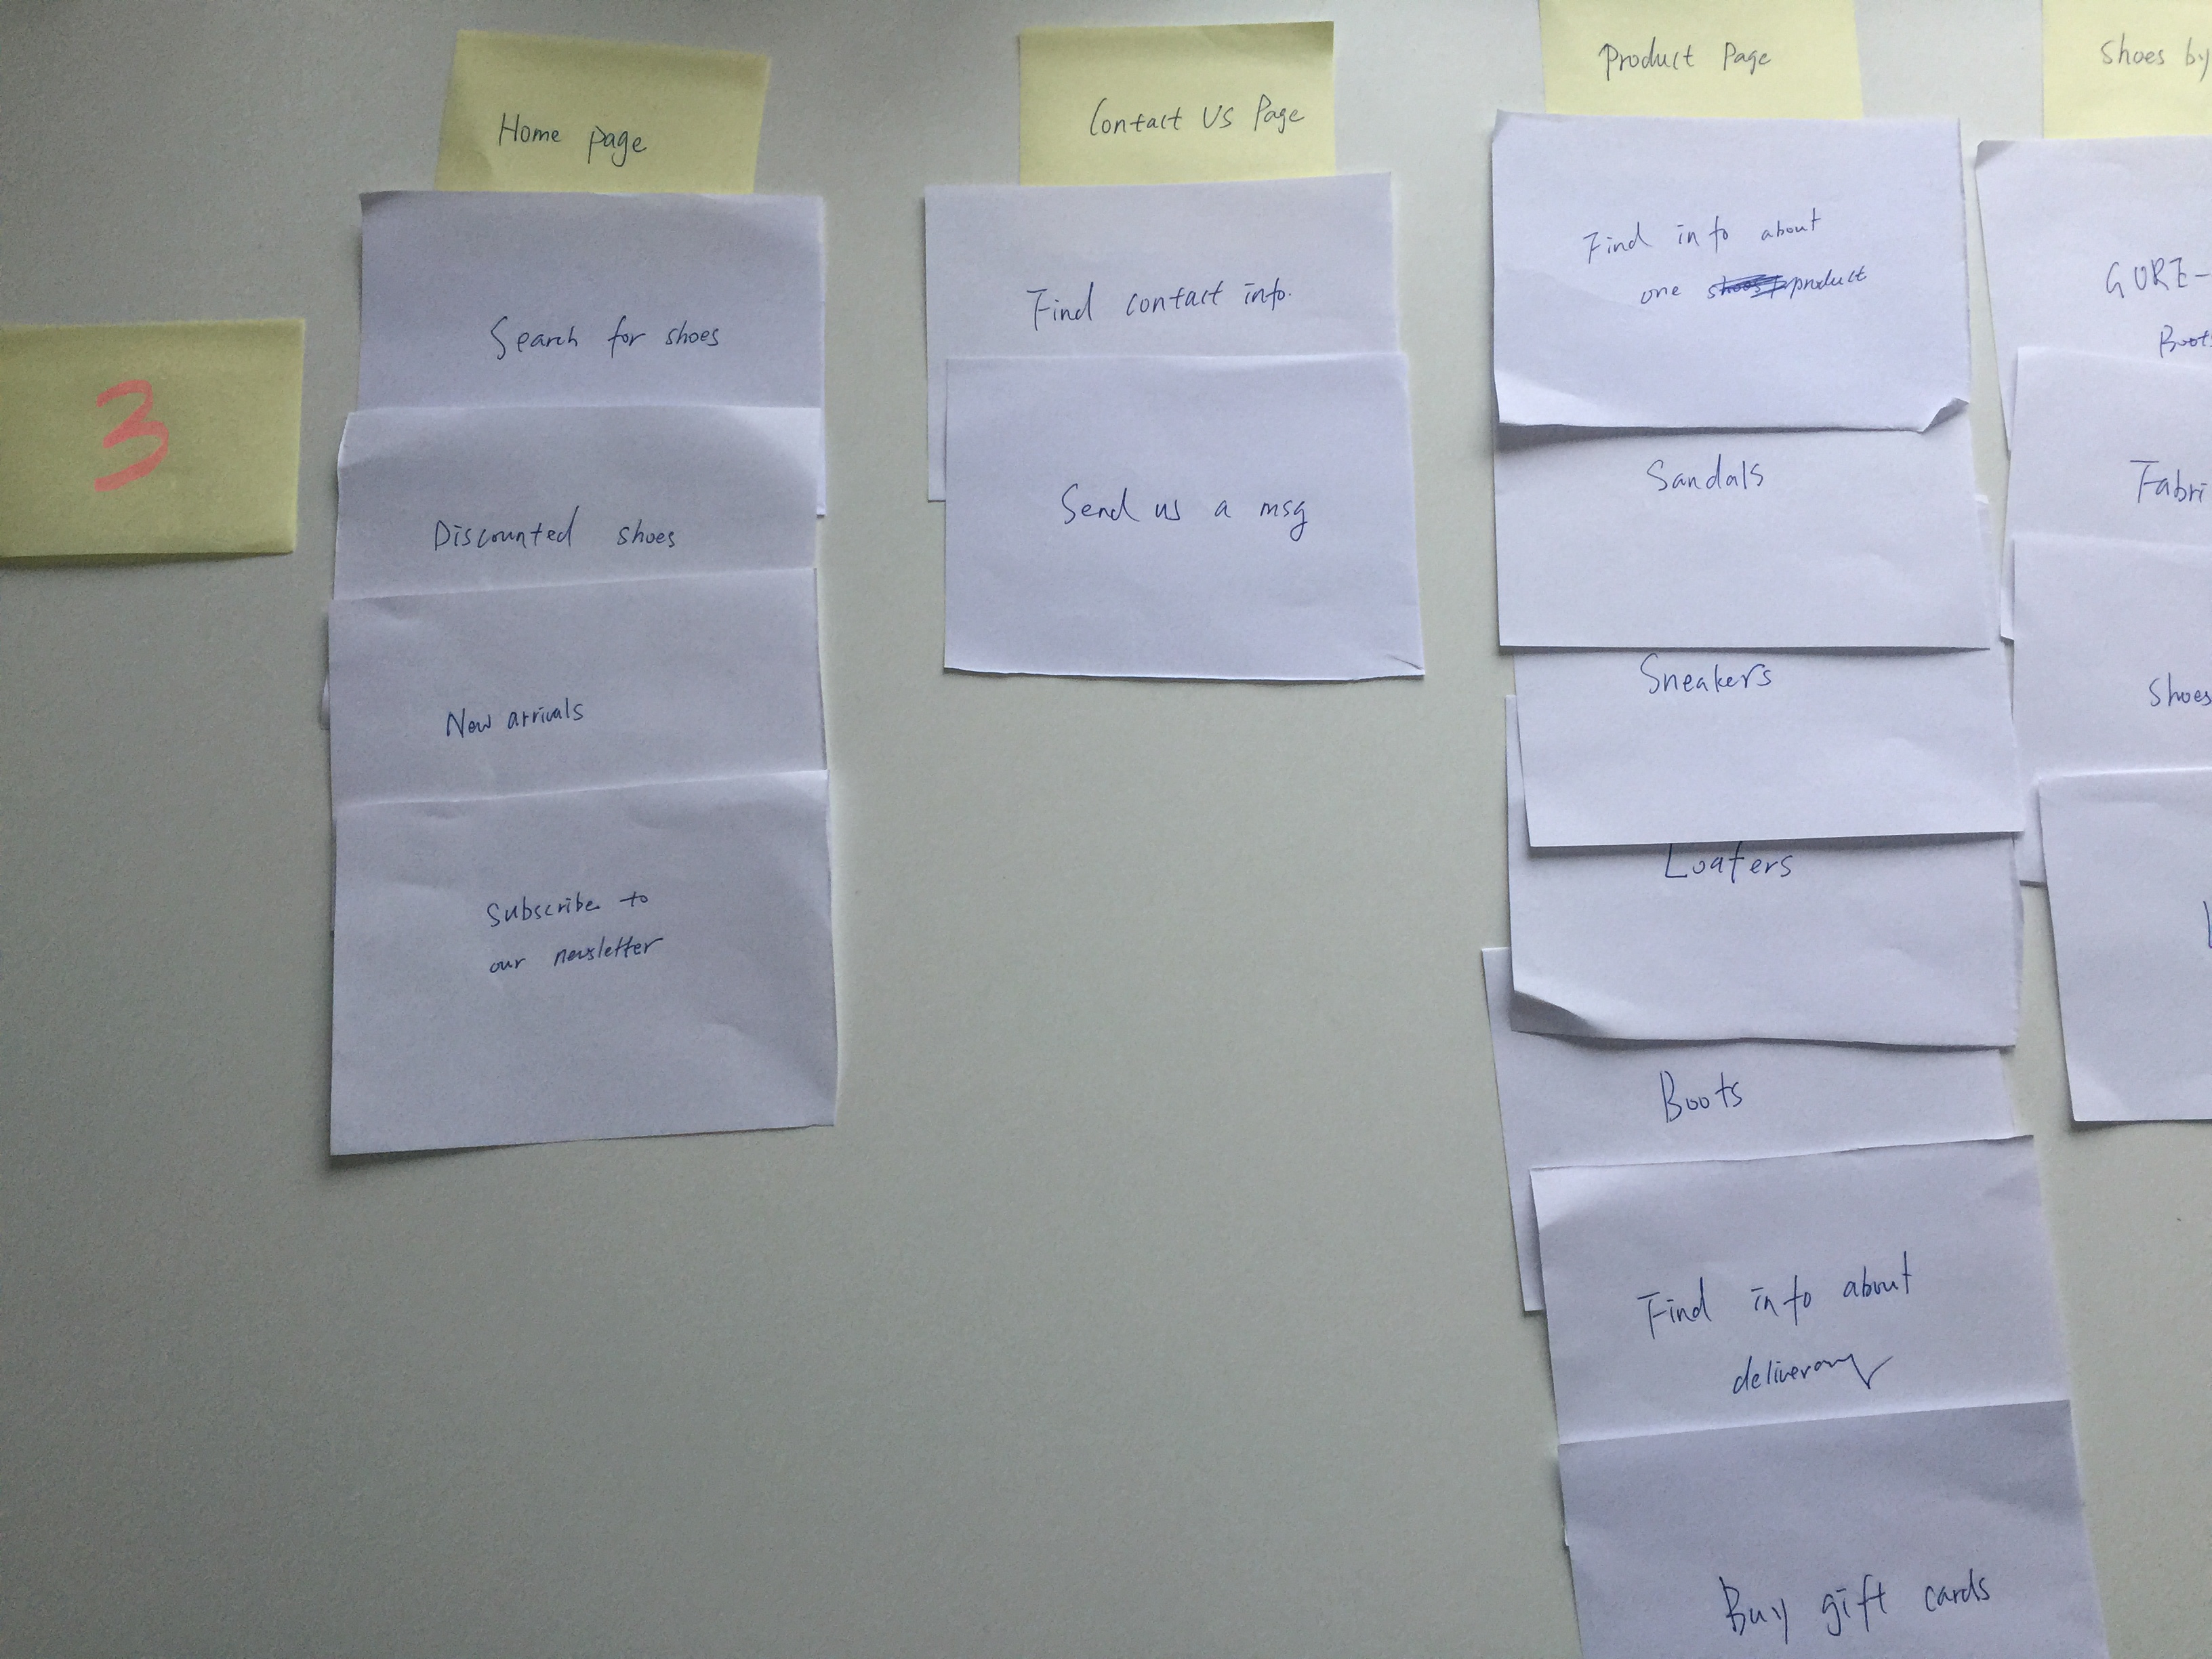 3
Home page
Search for shoes
Discounted shoes
New arrivals
Subscribe to
our newsletter
Contact Us Page
Find contact info.
Send us a msg
Product Page
Find info about
one product
Sandals
Sneakers
Loafers
Boots
Find info about
delivery
Buy gift cards
Shoes by
GORE-
Fabri
Shoes